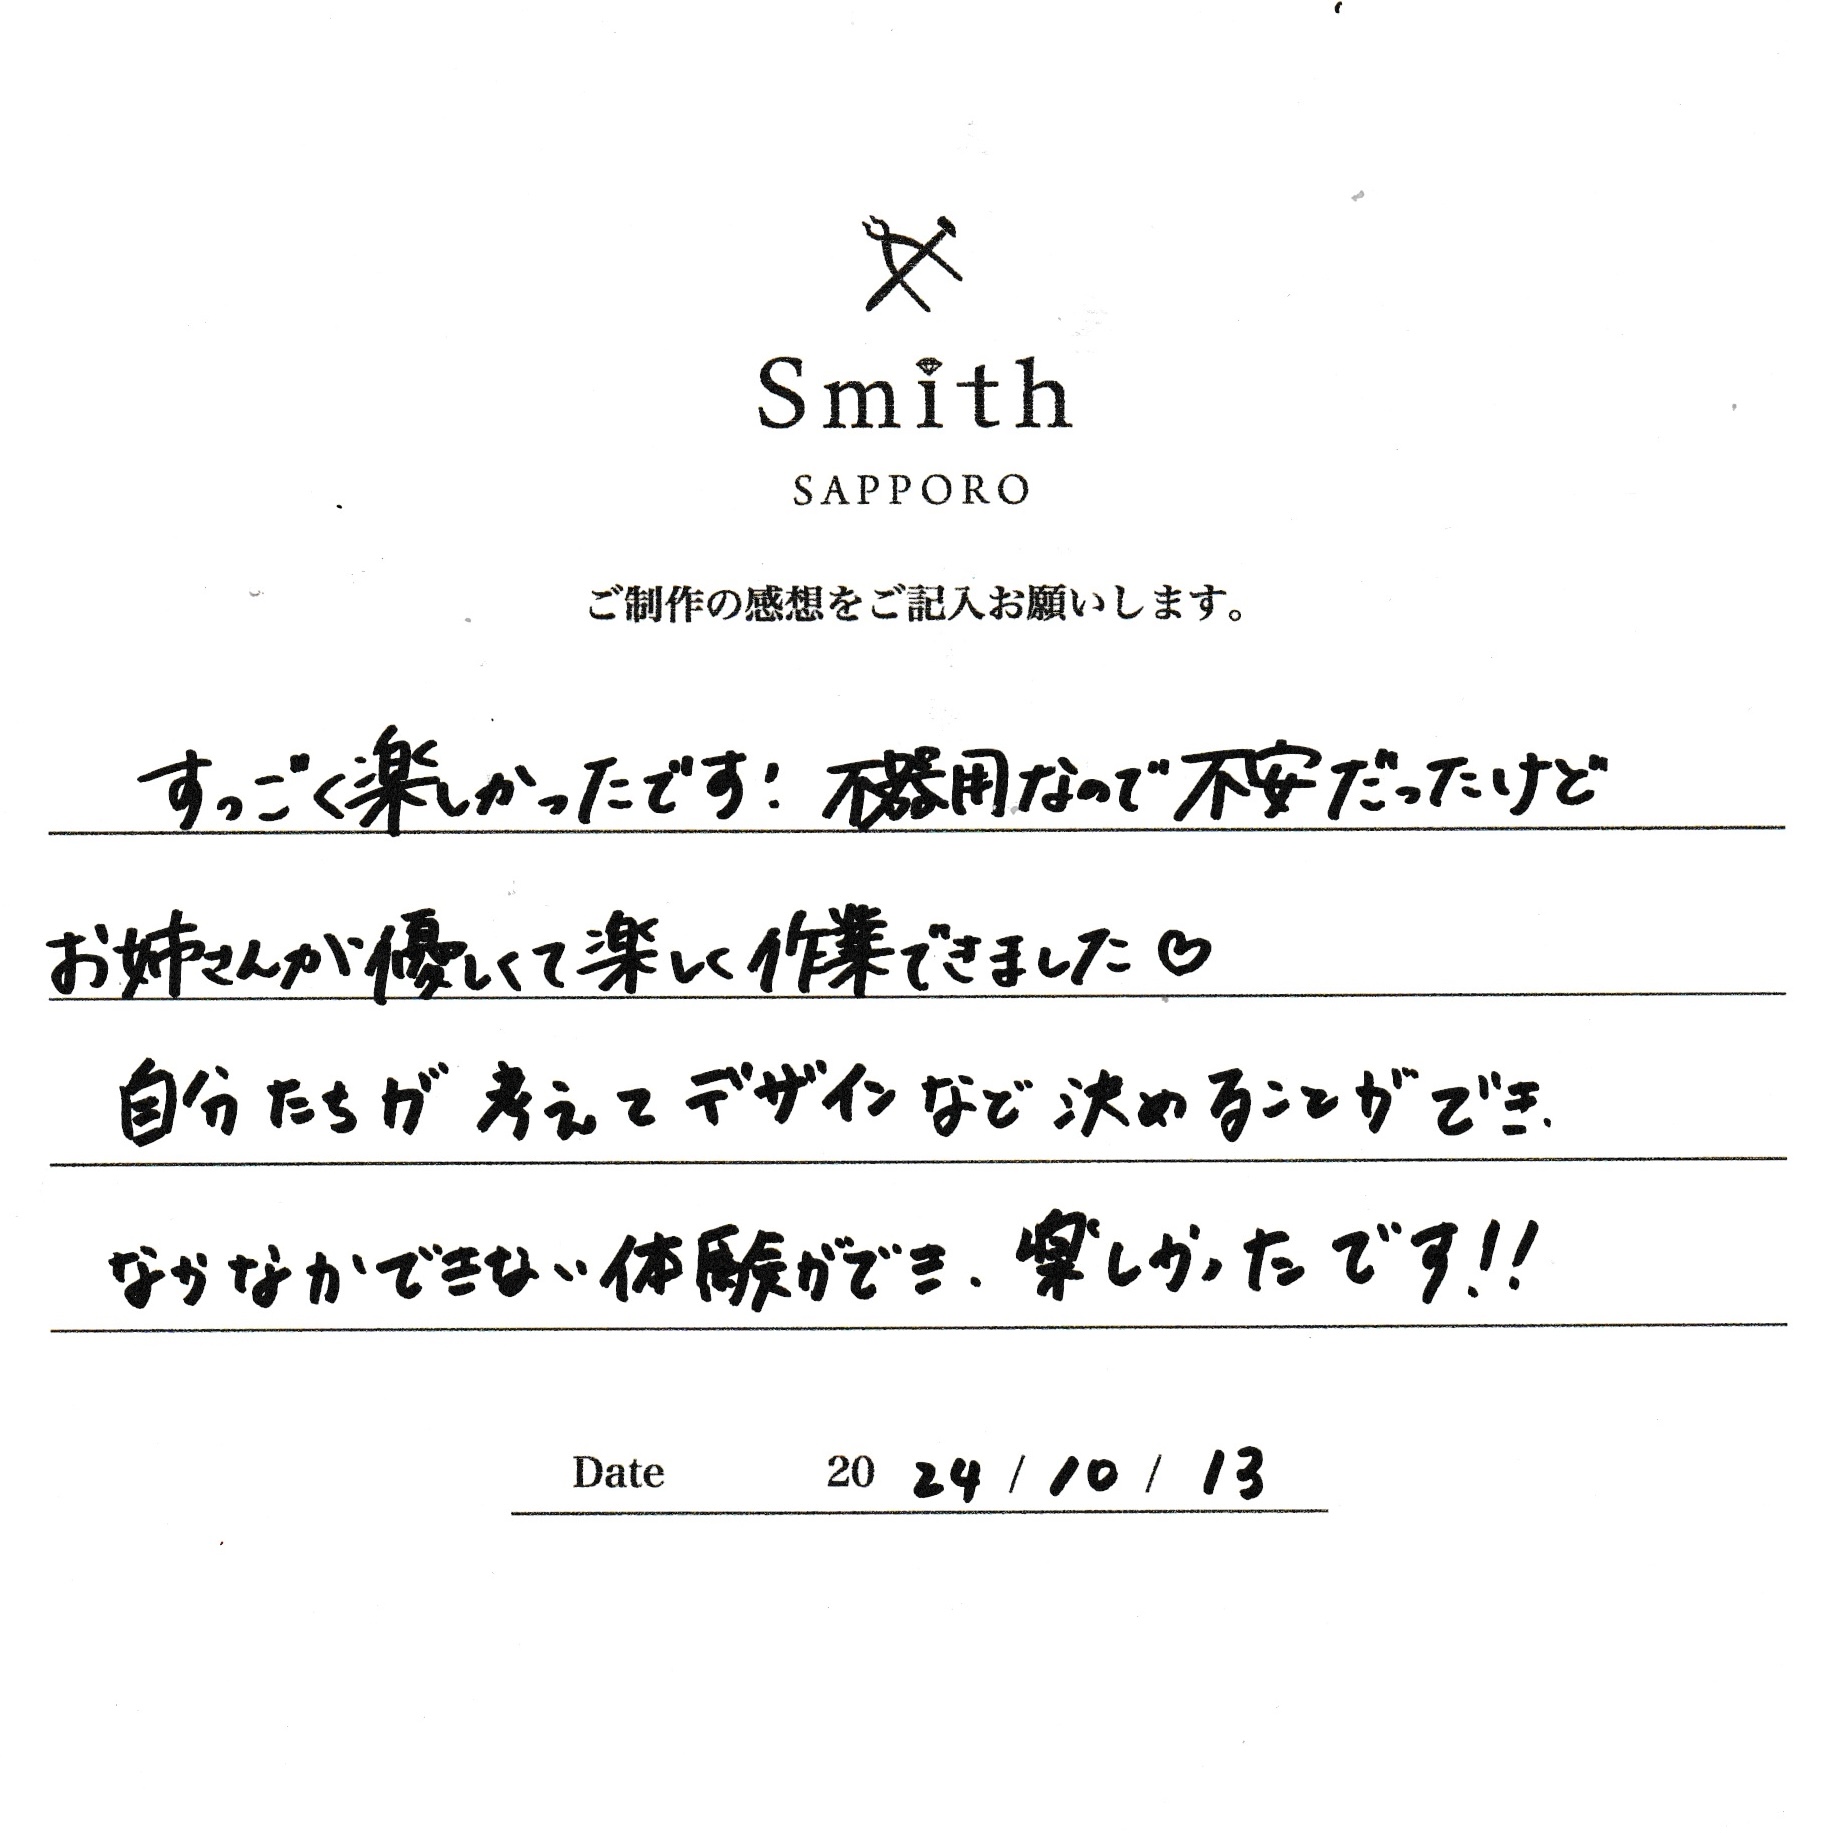 Smith
SAPPORO
ご制作の感想をご記入お願いします。
すっごく楽しかったです! 不器用なので不安だったけど
お姉さんが優しくて楽しく作業できました♡
自分たちが考えてデザインなど決めることができ、
なかなかできない体験ができ、楽しかったです!!
Date 2024/10/13